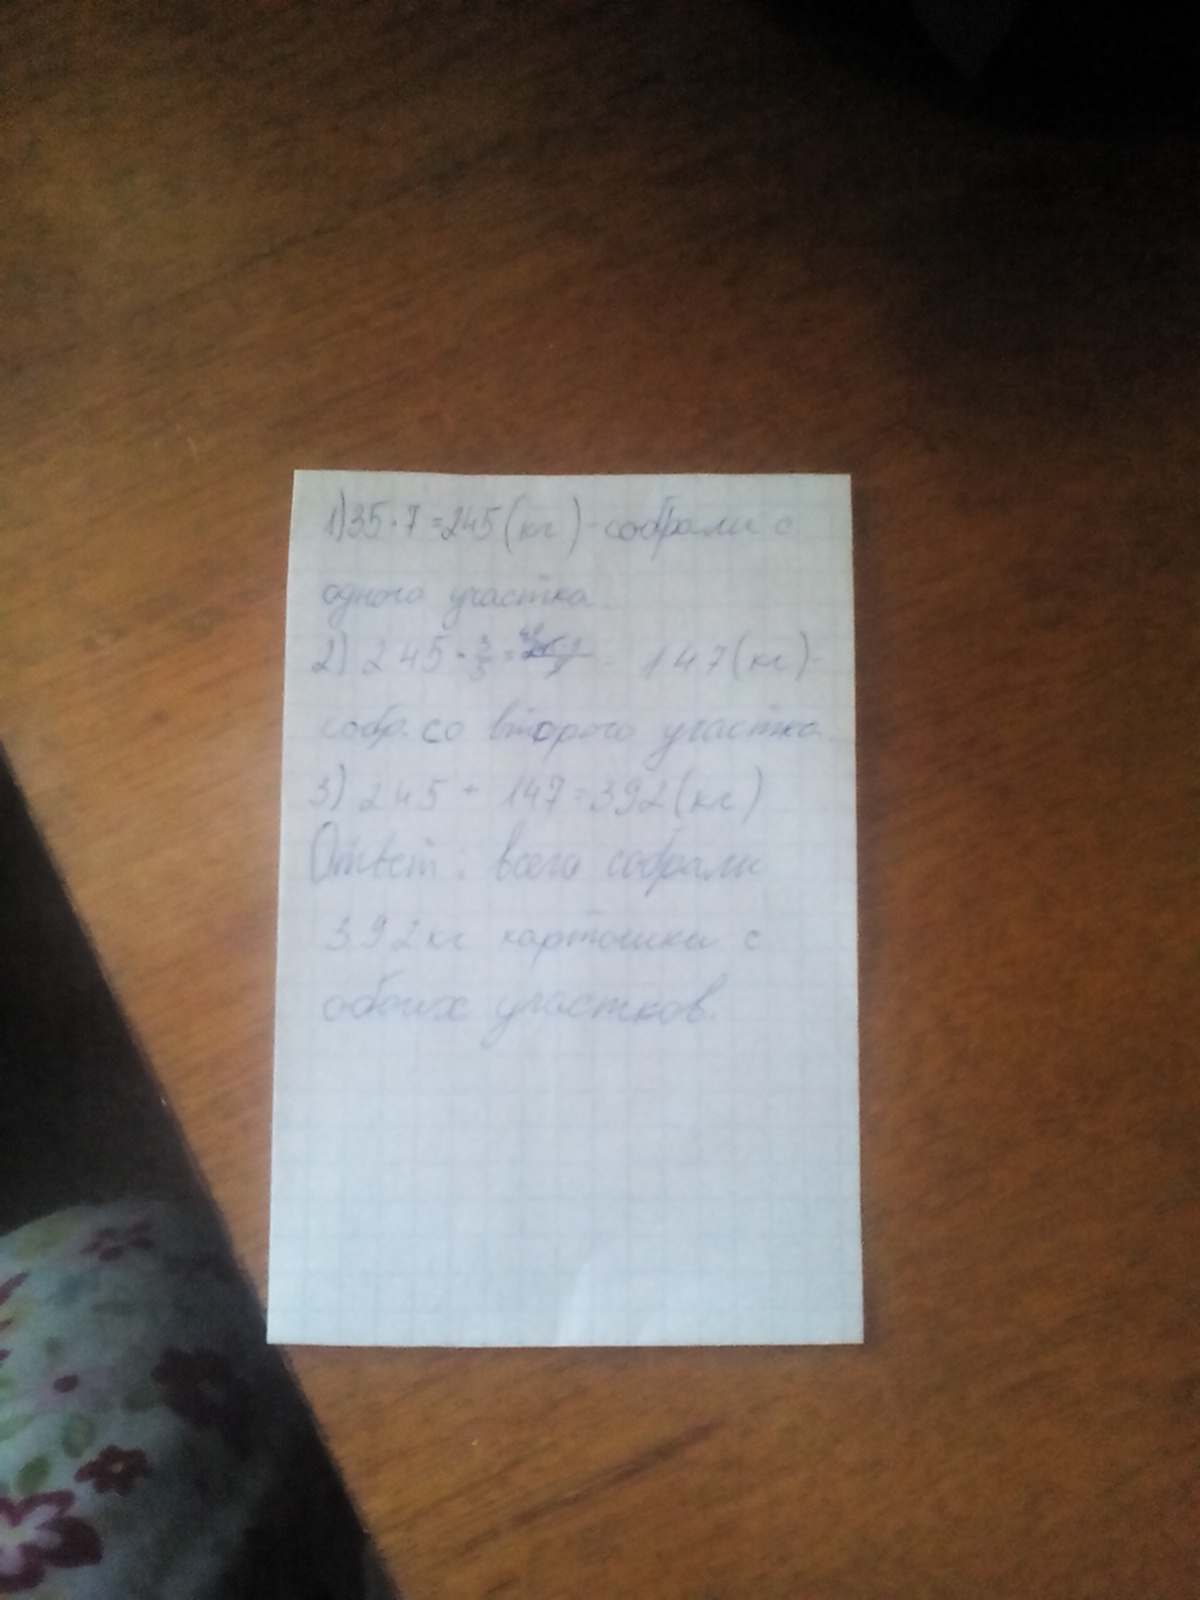 1) 35 · 7 = 245 (кг) - собрали с
одного участка.
2) 245 · 3/5 = = 147 (кг) -
собр. со второго участка
3) 245 + 147 = 392 (кг)
Ответ: всего собрали
392 кг картошки с
обоих участков.